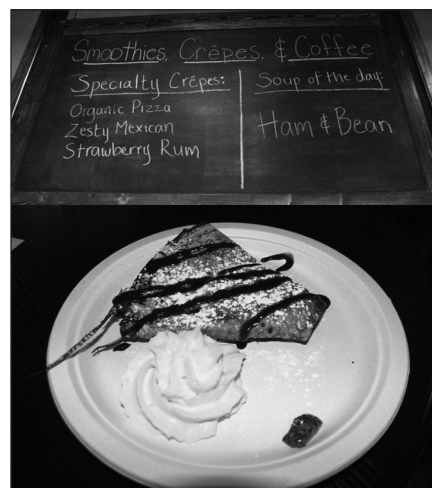 Smoothies, Crêpes, & Coffee
Specialty Crêpes:
Organic Pizza
Zesty Mexican
Strawberry Rum
Soup of the day:
Ham & Bean